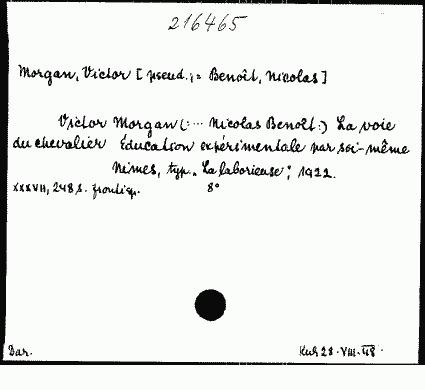 216465
Morgan, Victor [pseud.; = Benoît, Nicolas]
Victor Morgan (:... Nicolas Benoît:) La voie
du chevalier Éducation expérimentale par soi-même
Nimes, typ. "La laborieuse", 1922.
XXXVII, 248 s. frontisp. 8°
Dar. Kuh 28.VIII.48